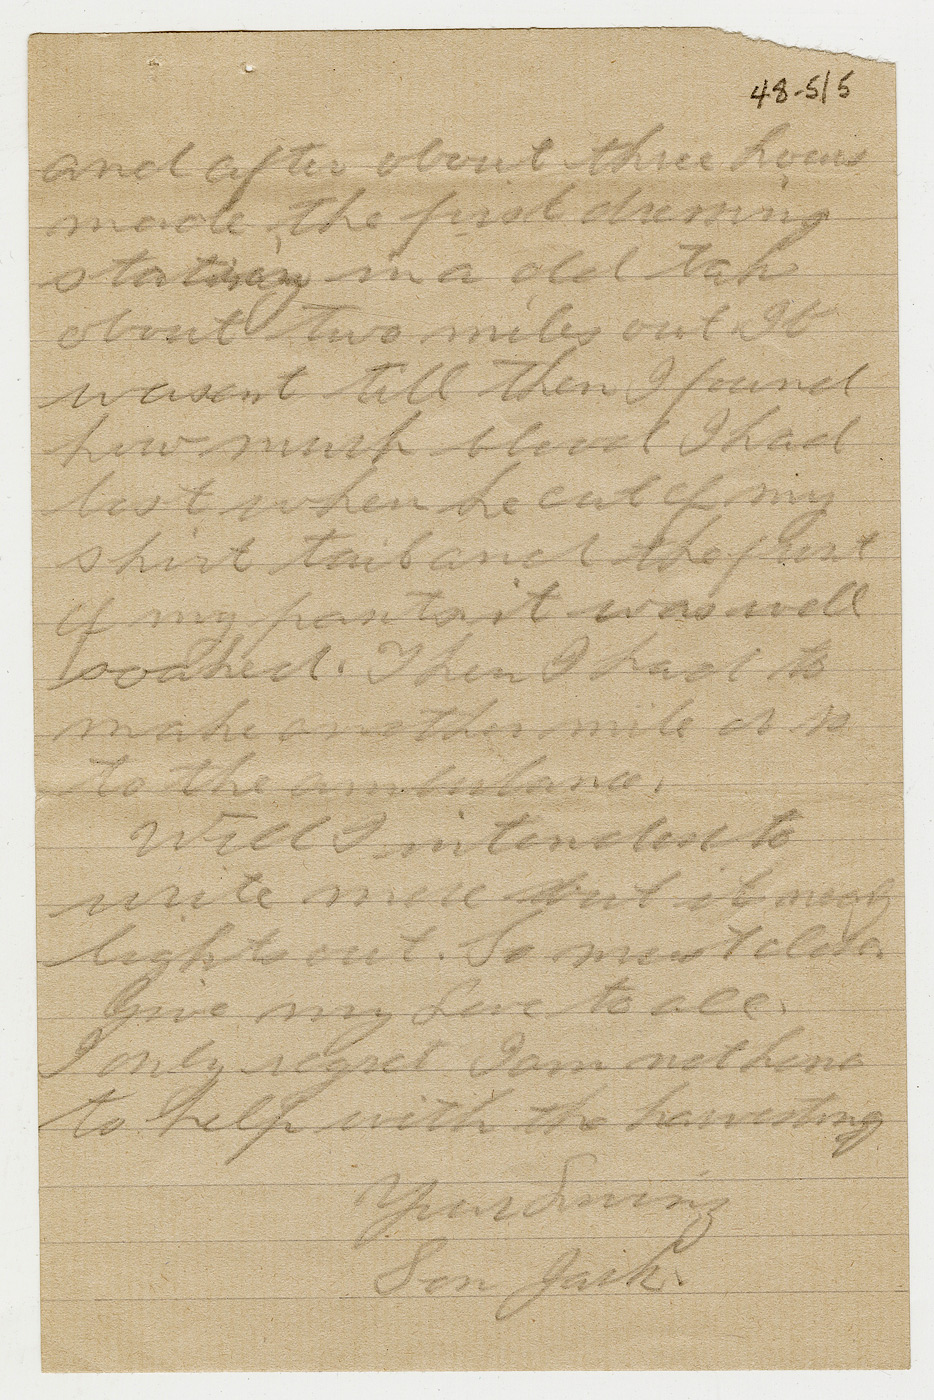 48-5/5
and after about three hours
made the first dressing
station in a old
about two miles out. It
wasent till then I found
how much blood I had
lost when he cut of my
shirt tail and the
of my pants it was well
soaked. Then I had to
make another mile or so
to the ambulance.
Well I intended to
write more but it
lights out. So must close.
Give my Love to all.
I only regret I am not home
to help with the harvesting
Your Loving
Son Jack.